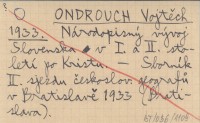 ONDROUCH Vojtěch
1933. Národopisný vývoj
Slovenska v I. a II. sto-
letí po Kristu. – Sborník
II. sjezdu českoslov. geografů
v Bratislavě 1933 (Brati-
slava).